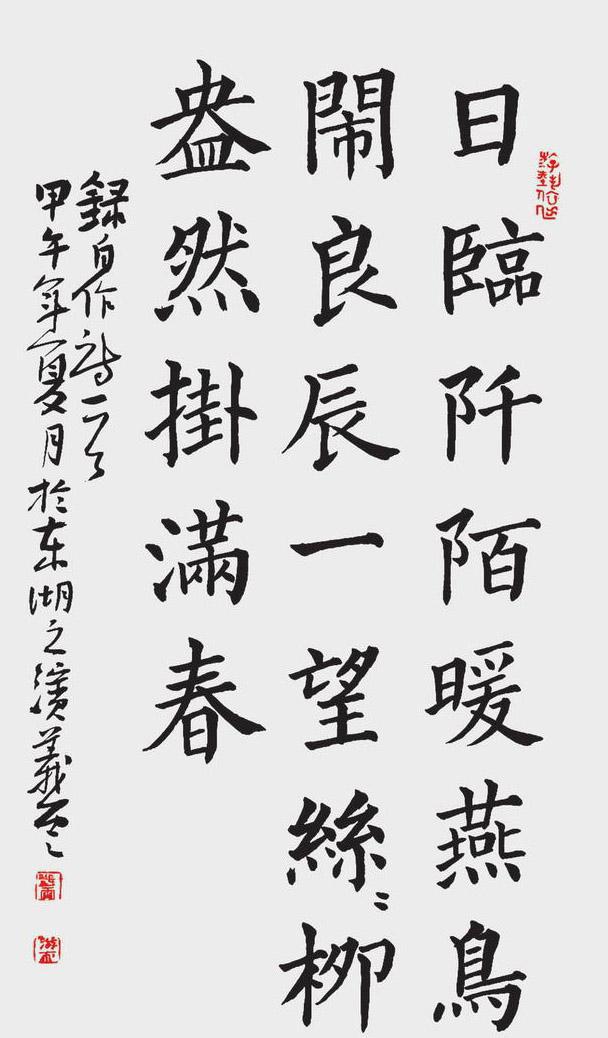 日臨阡陌暖燕鳥
鬧良辰一望絲〻柳
盎然掛滿春
録自作詩一首
甲午年夏月於东湖之濱義雲